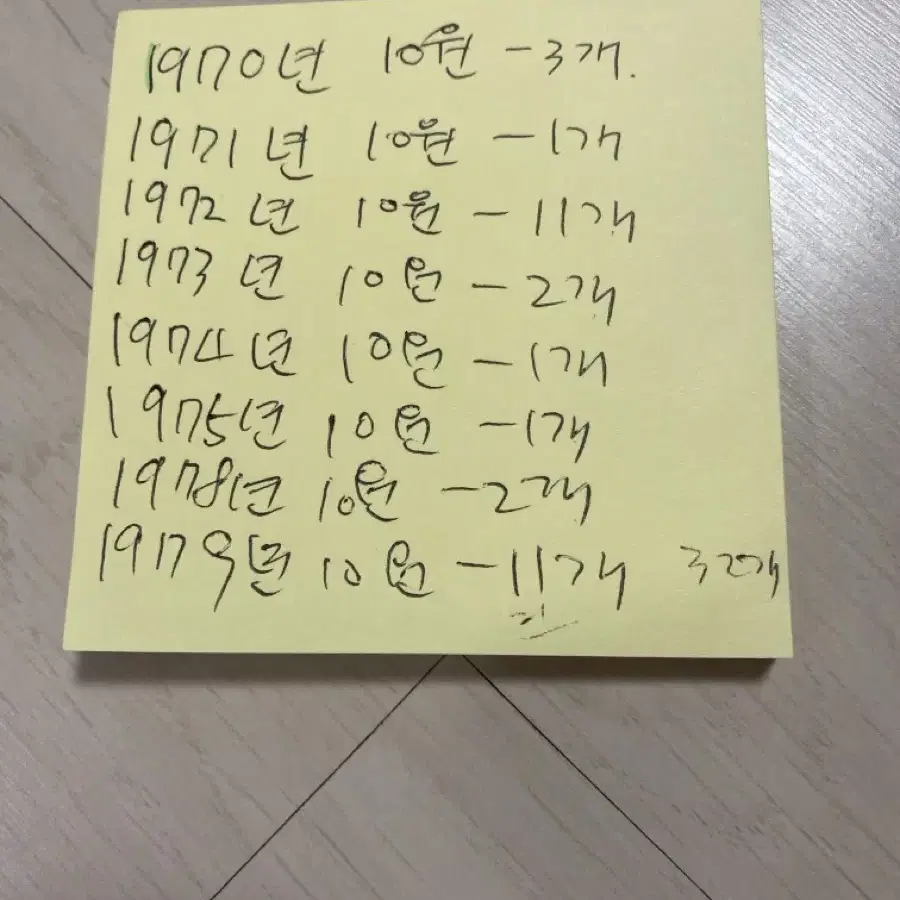 1970년 10원 - 3개.
1971년 10원 - 1개
1972년 10원 - 11개
1973년 10원 - 2개
1974년 10원 - 1개
1975년 10원 - 1개
1978년 10원 - 2개
1979년 10원 - 11개 32개